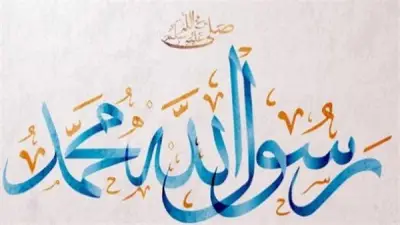 صلى الله عليه وسلم
رسول الله محمد